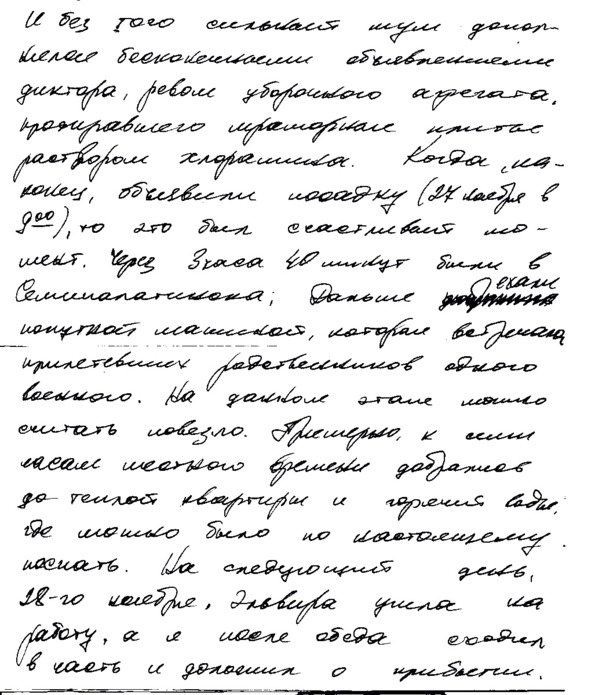 И без того сильный шум допол-
нялся бесконечными объявлениями
диктора, ревом уборочного агрегата,
протиравшего мраморные плиты
раствором хлорамина. Когда, на-
конец, объявили посадку (27 ноября в
9⁰⁰), то это был счастливый мо-
мент. Через 3 часа 40 минут были в
Семипалатинске; Дальше ехали
попуткой машиной, которая встречала
прилетевших родственников одного
военного. На данном этапе можно
считать повезло. Примерно, к семи
часам местного времени добрались
до теплой квартиры и горячей воды,
где можно было по настоящему
поспать. На следующий день,
28-го ноября, Эльвира ушла на
работу, а я после обеда сходил
в часть и доложил о прибытии.